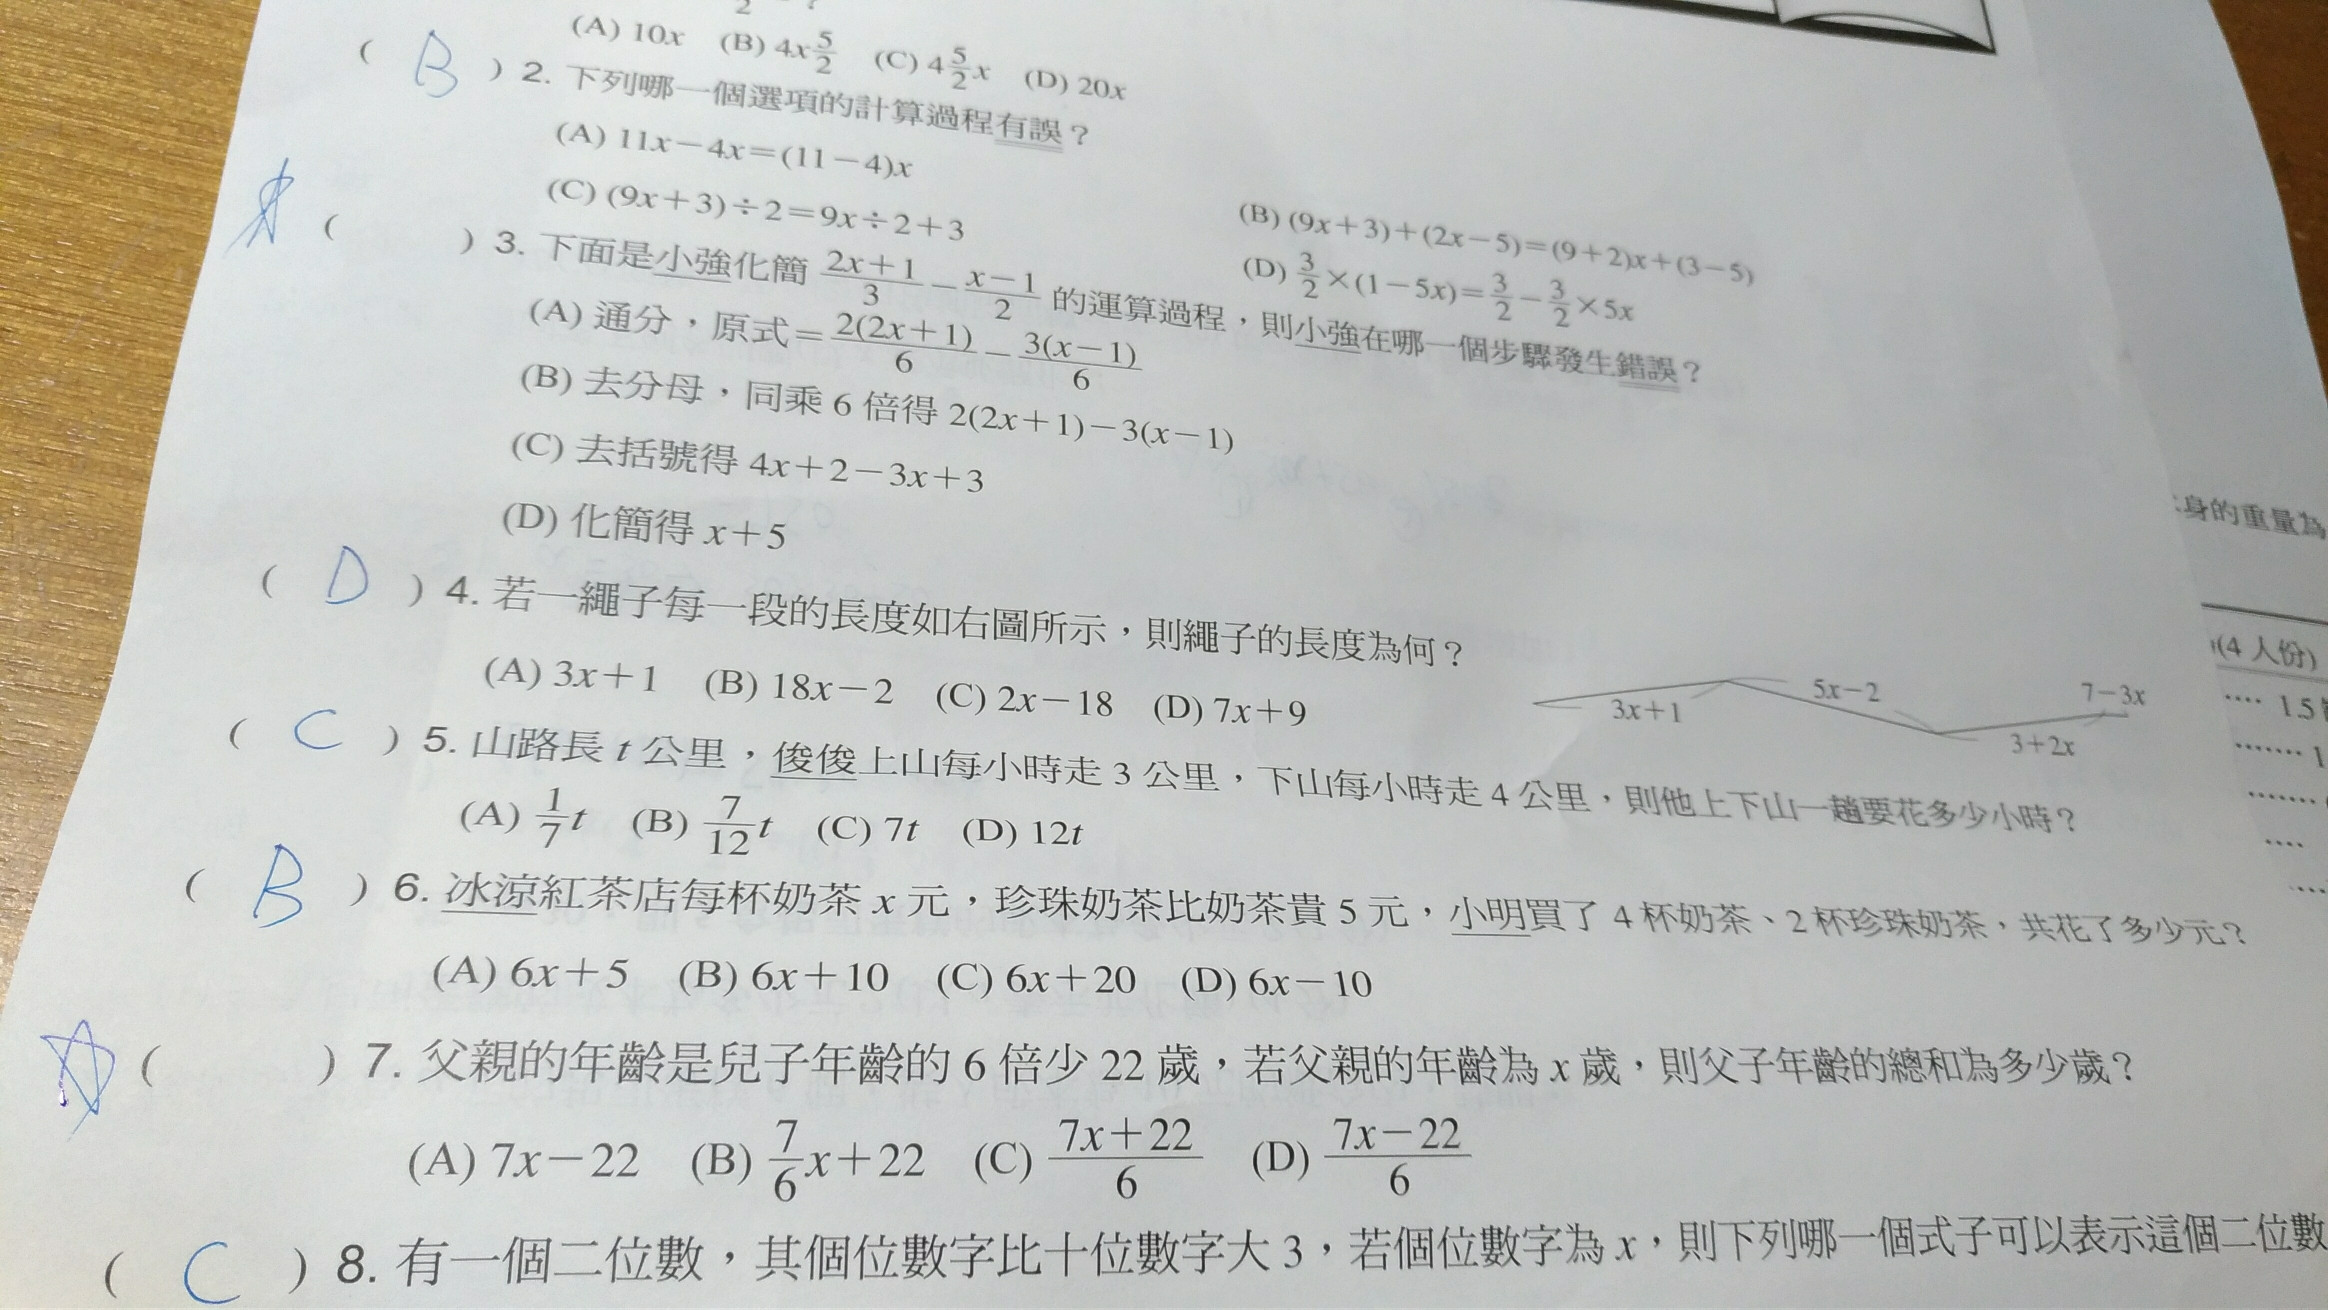 (A) 10x (B) 4x5/2 (C) 4 5/2 x (D) 20x
( B ) 2. 下列哪一個選項的計算過程有誤？
(A) 11x－4x＝(11－4)x
(B) (9x＋3)＋(2x－5)＝(9＋2)x＋(3－5)
(C) (9x＋3)÷2＝9x÷2＋3
(D) 3/2×(1－5x)＝3/2－3/2×5x
( ) 3. 下面是小強化簡 (2x＋1)/3－(x－1)/2 的運算過程，則小強在哪一個步驟發生錯誤？
(A) 通分，原式＝2(2x＋1)/6－3(x－1)/6
(B) 去分母，同乘 6 倍得 2(2x＋1)－3(x－1)
(C) 去括號得 4x＋2－3x＋3
(D) 化簡得 x＋5
( D ) 4. 若一繩子每一段的長度如右圖所示，則繩子的長度為何？
(A) 3x＋1 (B) 18x－2 (C) 2x－18 (D) 7x＋9
3x＋1 5x－2 3＋2x 7－3x
( C ) 5. 山路長 t 公里，俊俊上山每小時走 3 公里，下山每小時走 4 公里，則他上下山一趟要花多少小時？
(A) 1/7 t (B) 7/12 t (C) 7t (D) 12t
( B ) 6. 冰涼紅茶店每杯奶茶 x 元，珍珠奶茶比奶茶貴 5 元，小明買了 4 杯奶茶、2 杯珍珠奶茶，共花了多少元？
(A) 6x＋5 (B) 6x＋10 (C) 6x＋20 (D) 6x－10
( ) 7. 父親的年齡是兒子年齡的 6 倍少 22 歲，若父親的年齡為 x 歲，則父子年齡的總和為多少歲？
(A) 7x－22 (B) 7/6 x＋22 (C) (7x＋22)/6 (D) (7x－22)/6
( C ) 8. 有一個二位數，其個位數字比十位數字大 3，若個位數字為 x，則下列哪一個式子可以表示這個二位數
身的重量為
(4 人份)
···· 1.5